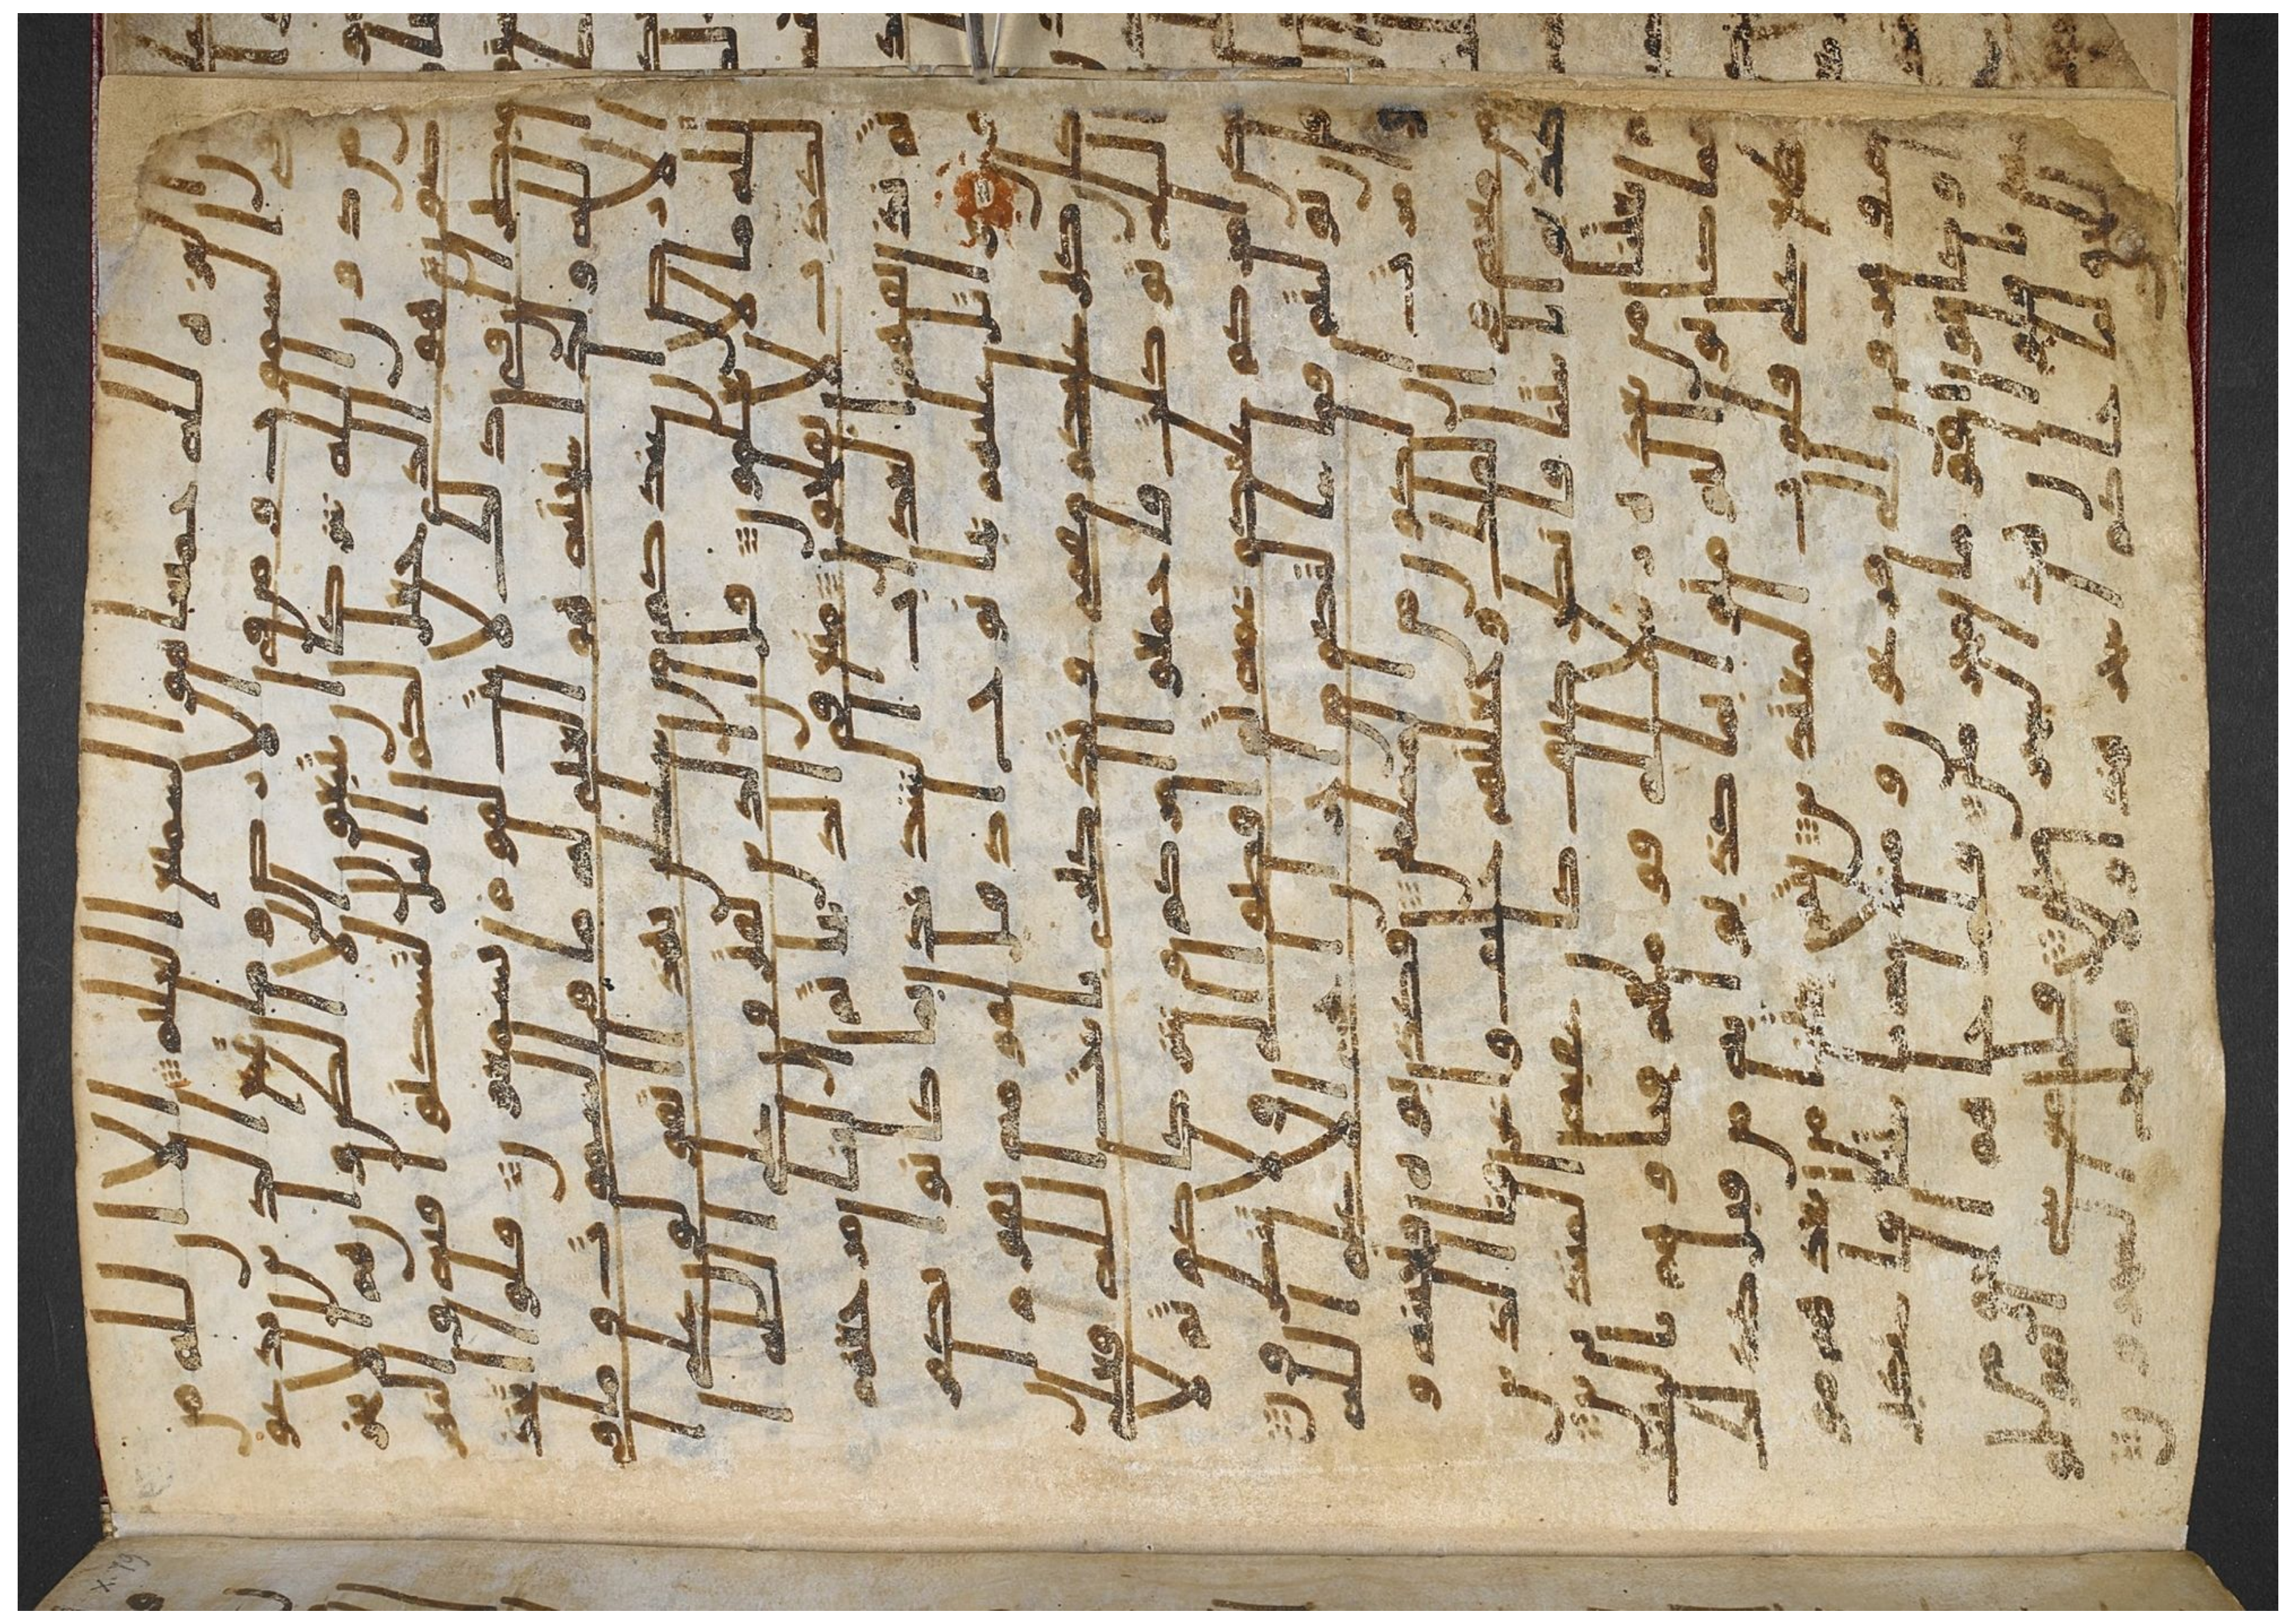 ان العزة لله جميعا هو السميع العليم الا ان لله من
في السموت ومن في الارض وما يتبع الذين يدعو
ن من دون الله شركا ان يتبعون الا الظن وان هم الا يخر
صون هو الذي جعل لكم اليل لتسكنوا فيه والنهر
مبصرا ان في ذلك لايت لقوم يسمعون قلوا اتخذ
الله ولدا سبحنه هو الغني له ما في السموت وما في
الارض ان عندكم من سلطن بهذا اتقولون على ا
لله ما لا تعلمون قل ان الذين يفترون على الله ا
لكذب لا يفلحون متع في الدنيا ثم الينا مرجعهم
ثم نذيقهم العذاب الشديد بما كانوا يكفرو
ن واتل عليهم نبا نوح اذ قل لقومه يقوم ان
كان كبر عليكم مقمي وتذكيري بايت الله فعلى
الله توكلت فاجمعوا امركم وشركاكم ثم لا
يكن امركم عليكم غمة ثم اقضوا الي ولا تنظرون
فان توليتم فما سالتكم من اجر ان اجري الا على الله
وامرت ان اكون من المسلمين فكذبوه فنجينه و
من معه في الفلك وجعلنهم خلئف واغرقنا الذين
كذبوا بايتنا فانظر كيف كان عقبة المنذرين
ثم بعثنا من بعده رسلا الى قومهم فجاوهم بالبينت
فما كانوا ليومنوا بما كذبوا به من قبل كذلك
نطبع على قلوب المعتدين ثم بعثنا من بعدهم مو
سى وهرون الى فرعون وملايه بايتنا فاستكبر
وا وكانوا قوما مجرمين فلما جاهم الحق من عند
نا قالوا ان هذا لسحر مبين قل موسى اتقولو
ن للحق لما جاكم اسحر هذا ولا يفلح السحرون